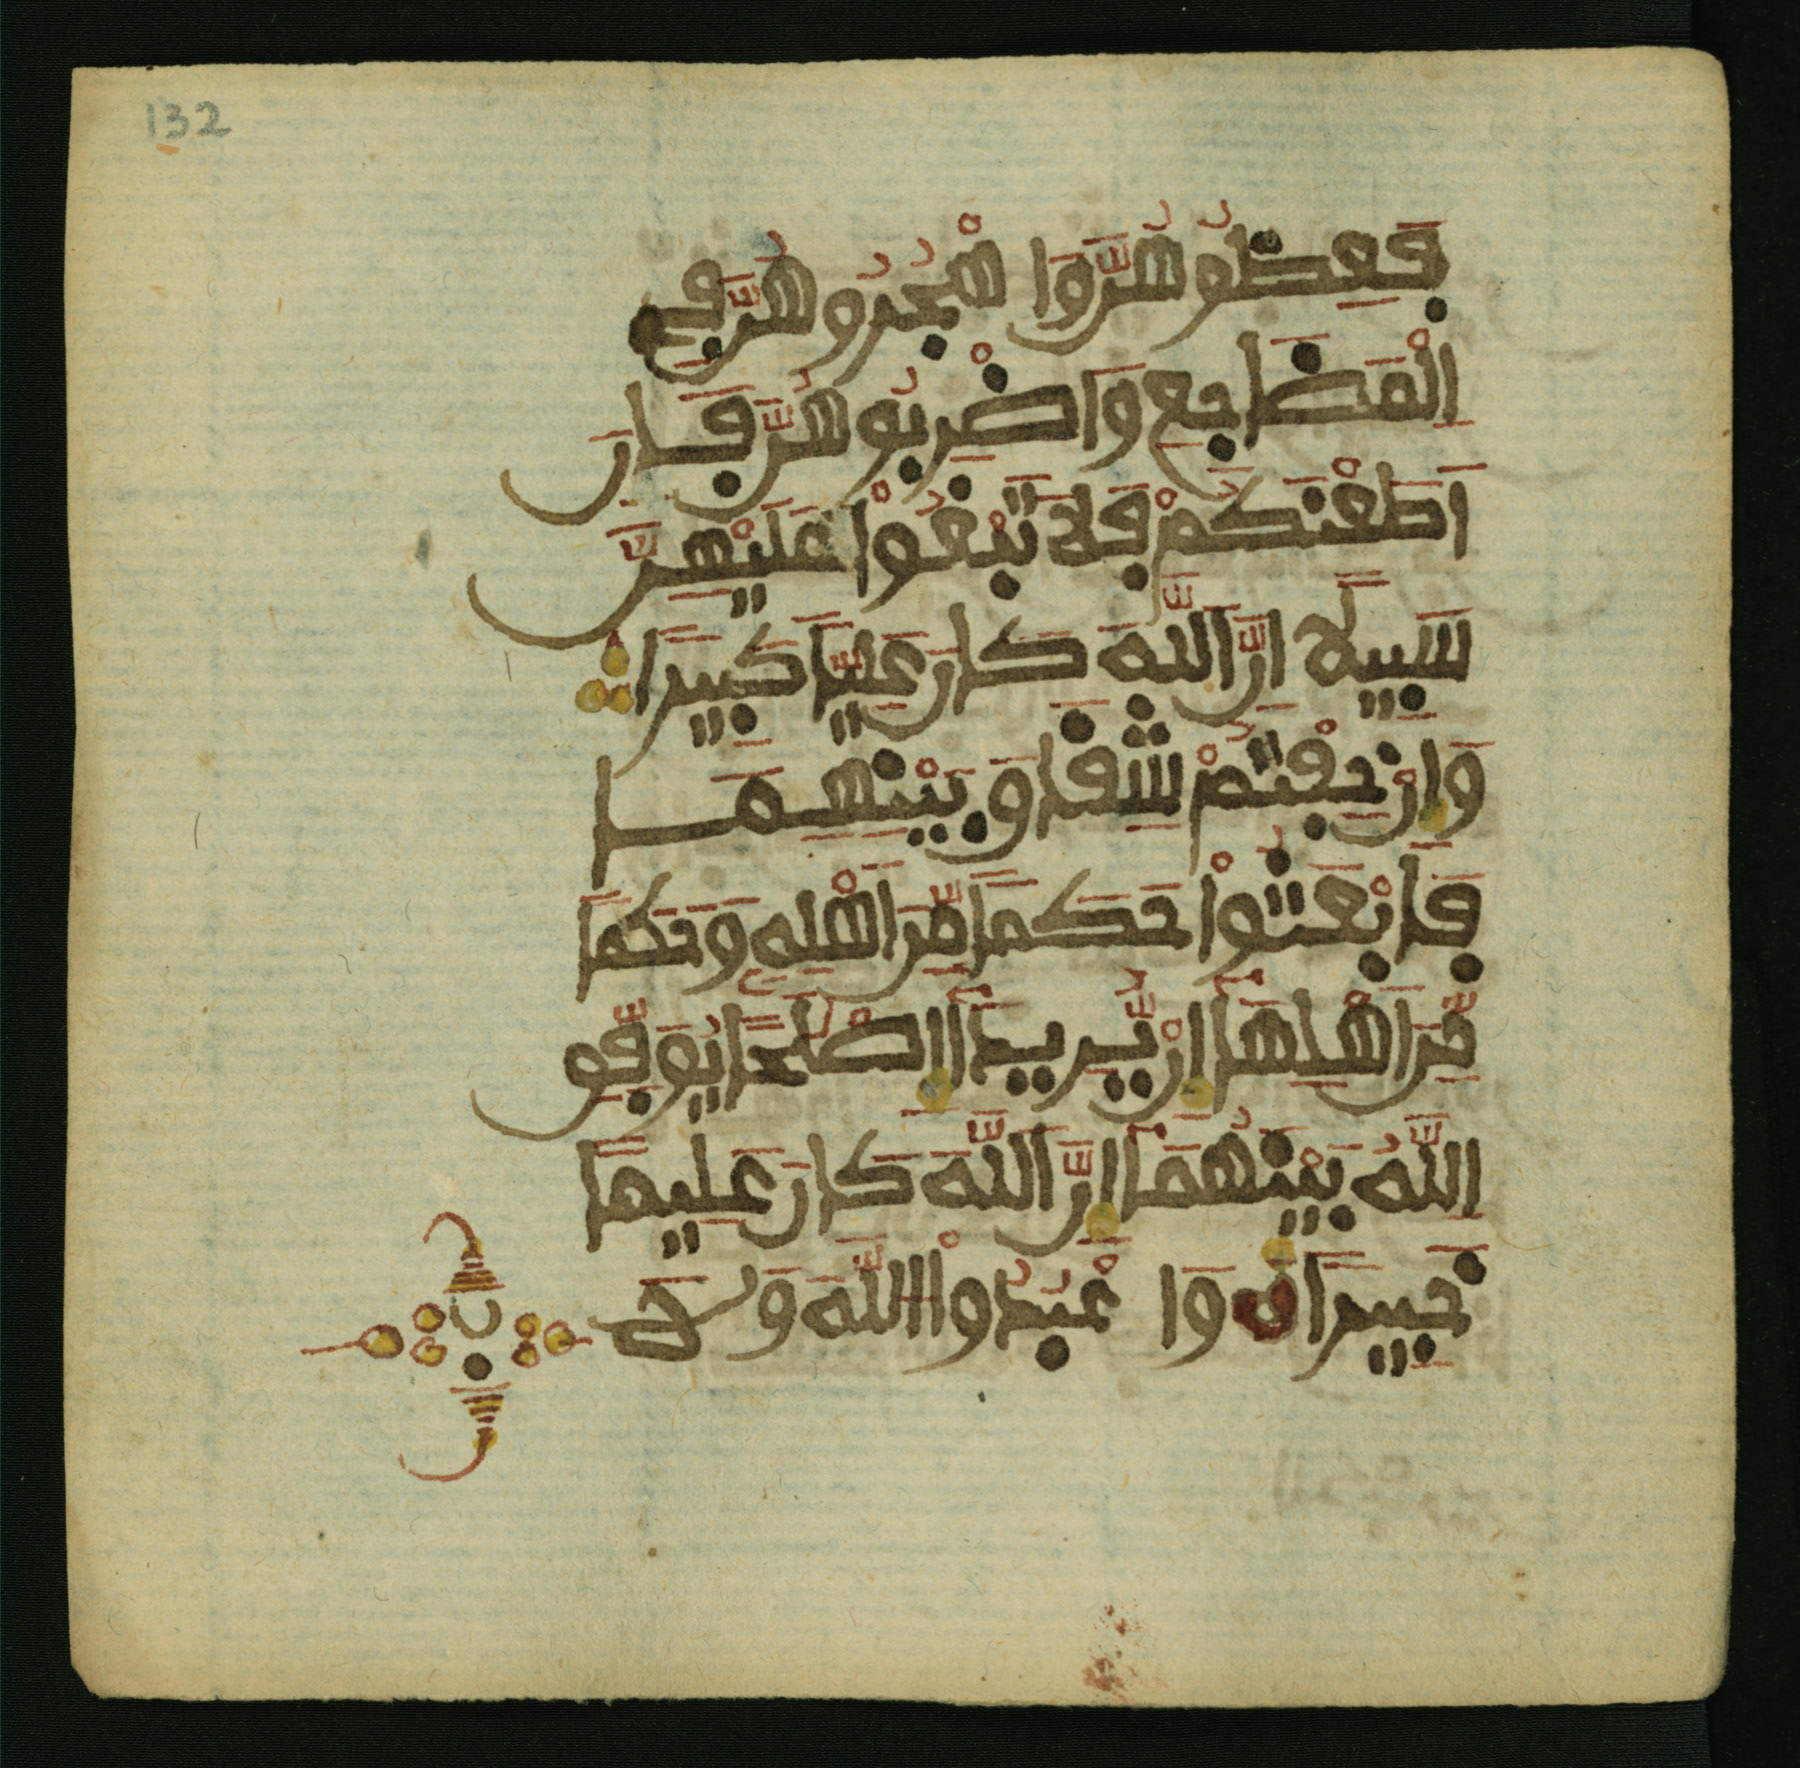 132
فَعِظُوهُنَّ وَاهْجُرُوهُنَّ فِے
اِ۬لْمَضَاجِعِ وَاضْرِبُوهُنَّ فَإِنَ
اَطَعْنَكُمْ فَلَا تَبْغُواْ عَلَيْهِنَّ
سَبِيلًا إِنَّ اَ۬للَّهَ كَانَ عَلِيّاً كَبِيراً
وَإِنْ خِفْتُمْ شِقَاقَ بَيْنِهِمَا
فَابْعَثُواْ حَكَماً مِّنَ اَهْلِهِ وَحَكَماً
مِّنَ اَهْلِهَا إِنْ يُّرِيدَا إِصْلَٰحاً يُوَفِّقِ
اِ۬للَّهُ بَيْنَهُمَا إِنَّ اَ۬للَّهَ كَانَ عَلِيماً
خَبِيراً وَاعْبُدُواْ اُ۬للَّهَ وَلَا